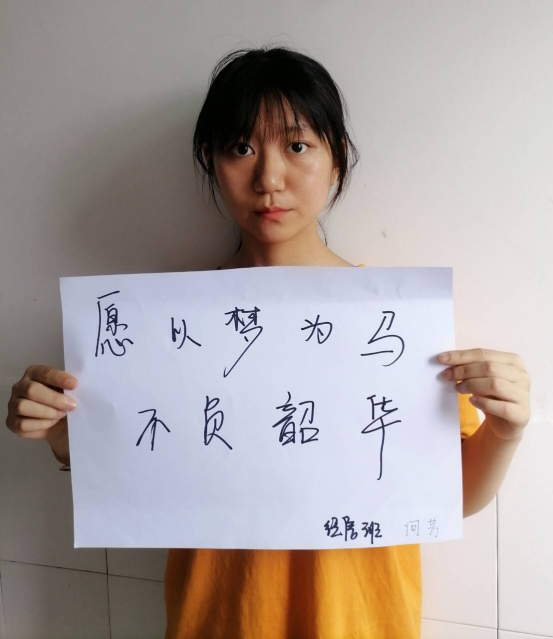 愿以梦为马
不负韶华
经居班 何芳